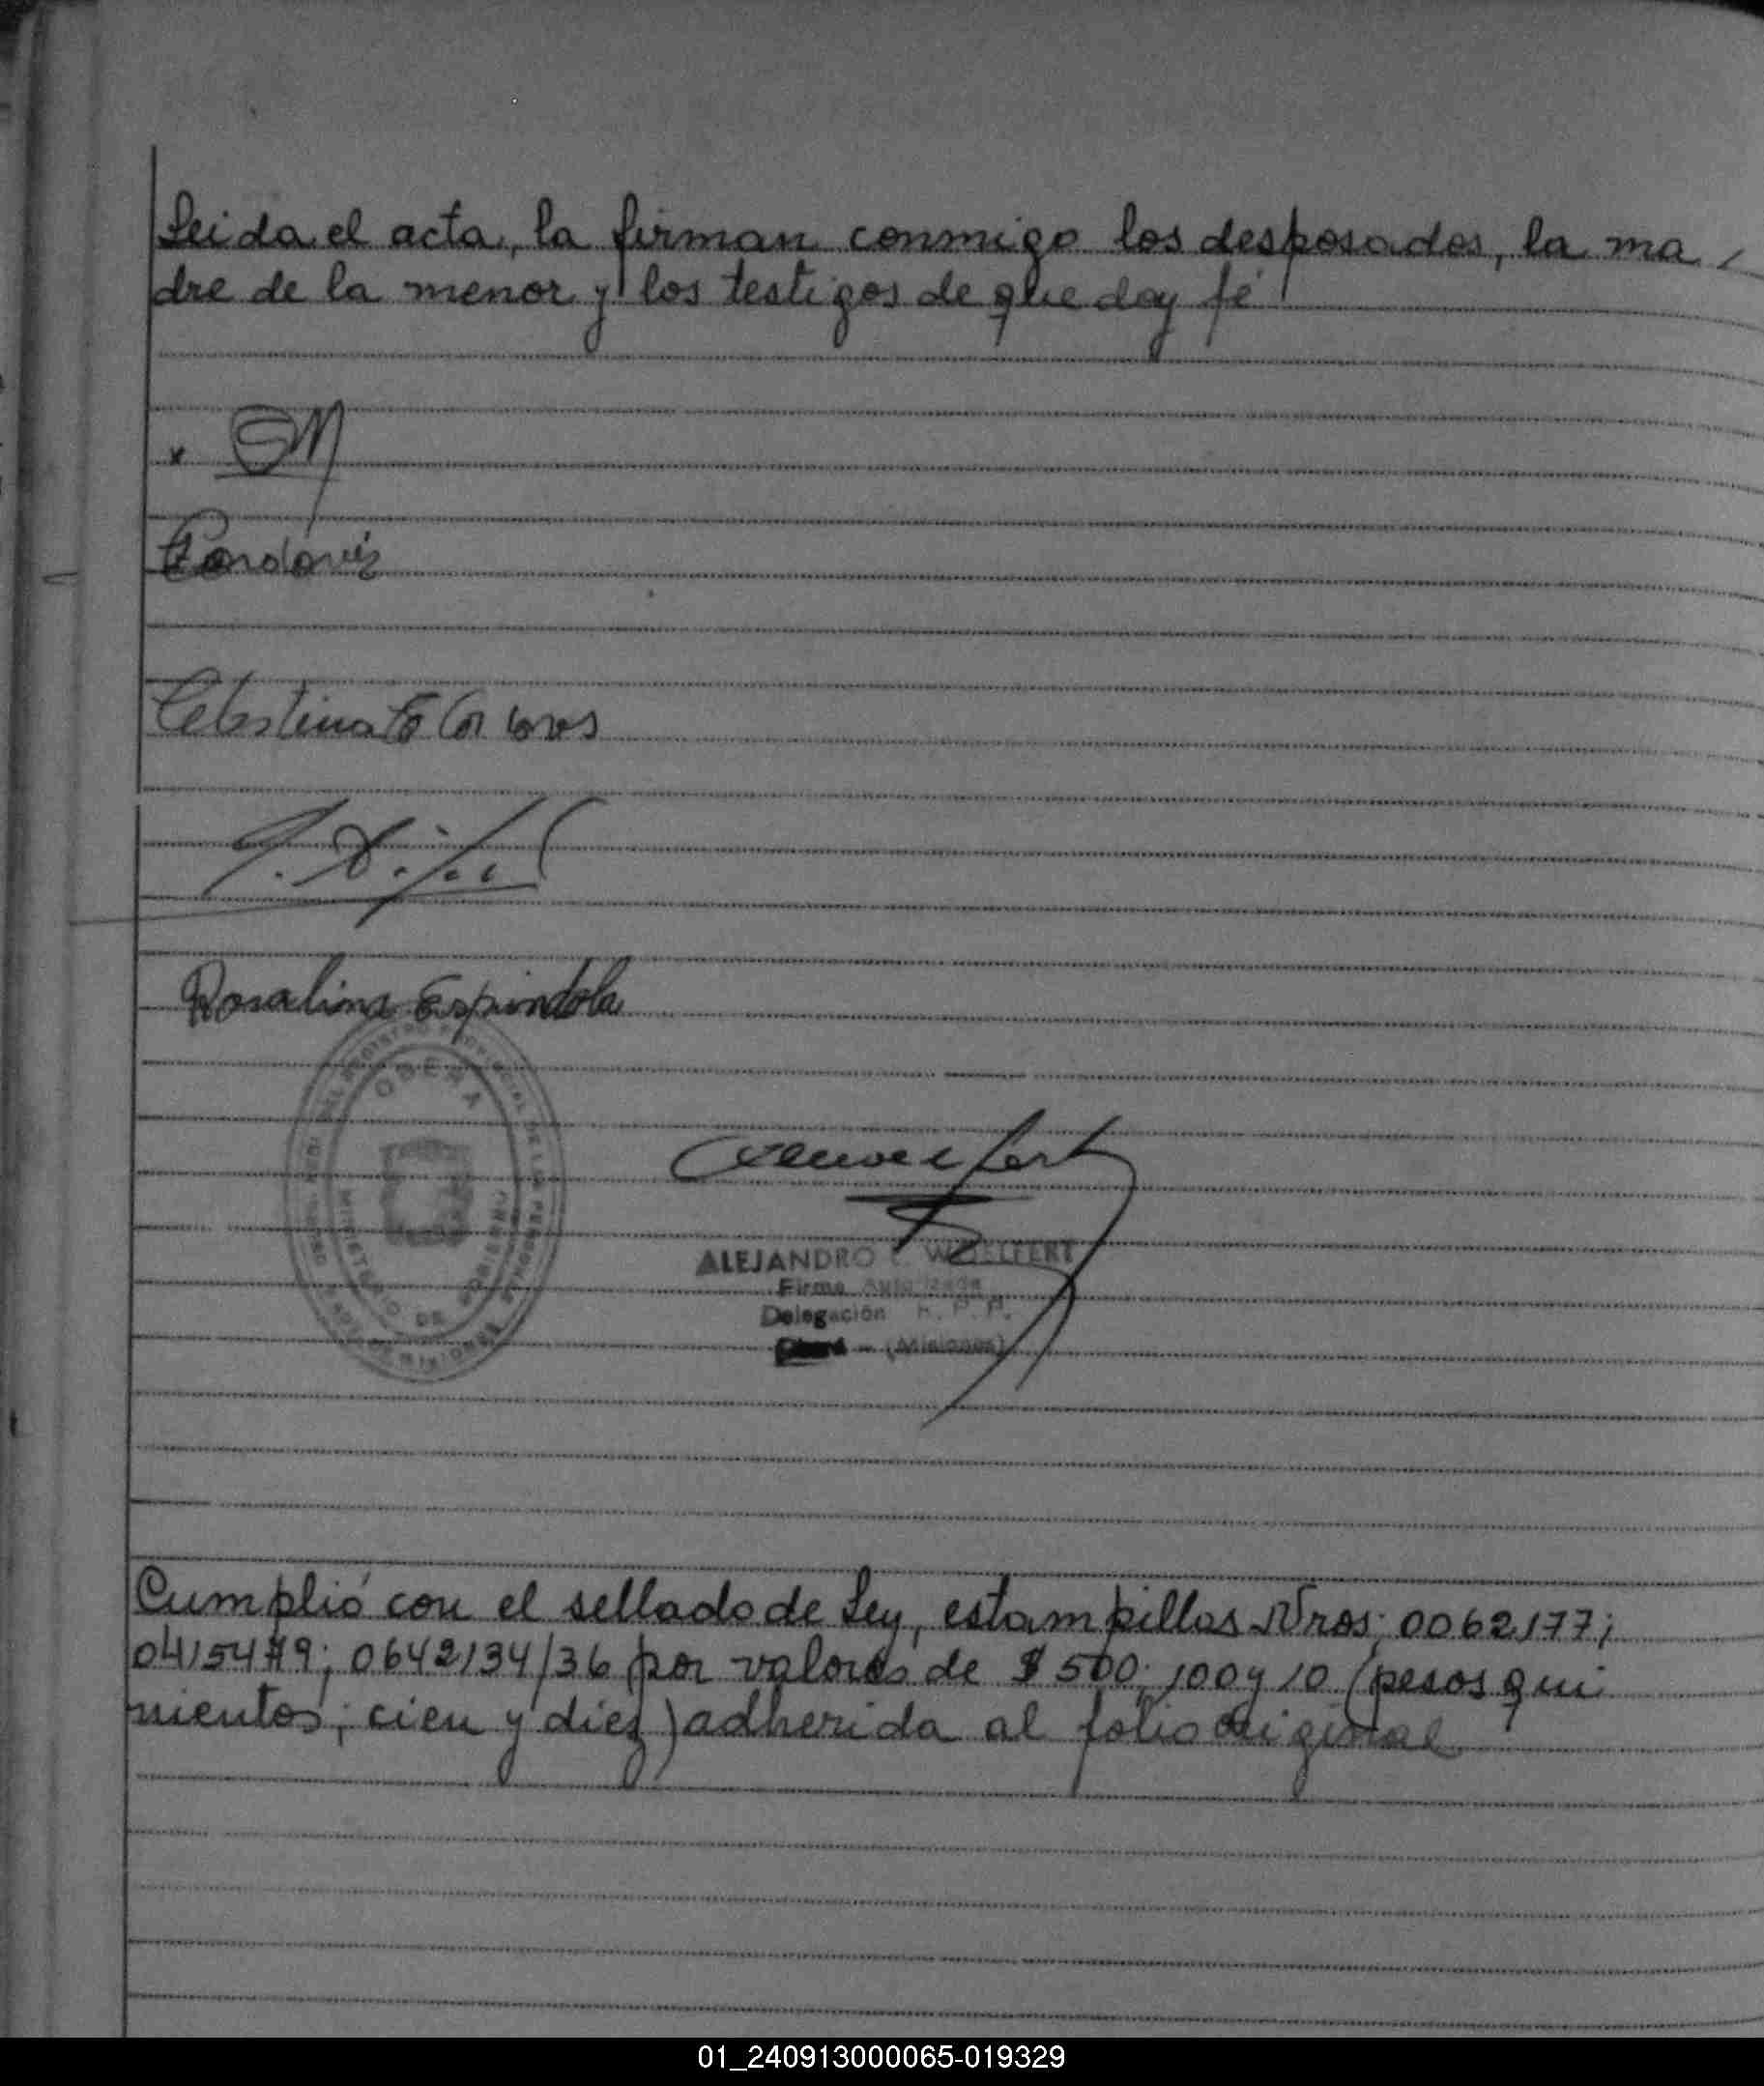 Leida el acta, la firman conmigo los desposados, la ma
dre de la menor y los testigos de que doy fé
x
Celestina
Rosalina Espindola
OBERA
MINISTERIO DE GOBIERNO
MISIONES
ALEJANDRO WOELFERT
Firma Autorizada
Delegación R. P. P.
(Misiones)
Cumplió con el sellado de Ley, estampillas Nros; 0062177;
0415479; 0642134/36 por valores de $ 500; 100 y 10 (pesos qui
nientos; cien y diez) adherida al folio original
01_240913000065-019329